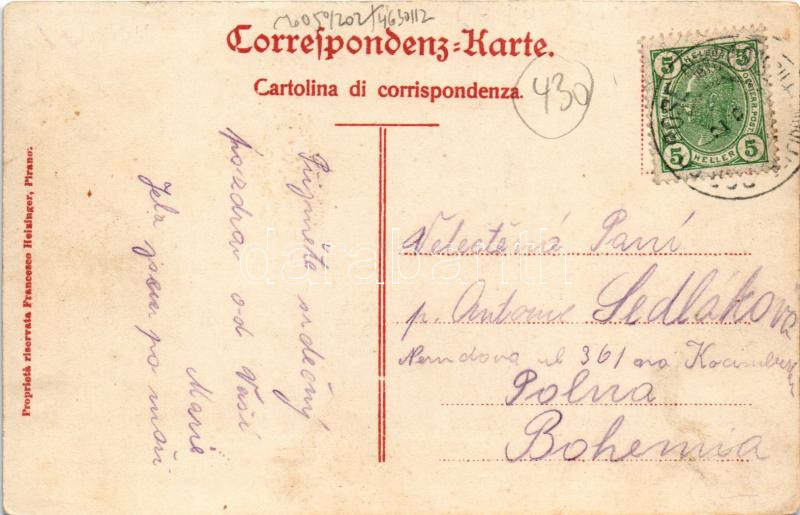 2605°/202/4630112
Correspondenz-Karte.
Cartolina di corrispondenza.
430
5 5
5 HELLER 5
Přijměte srdečný
pozdrav od Vaší
Marie
Jela jsem po moři
Velectěná Paní
p. Antonie Sedlaková
Nerudova ul 361 na
Polna
Bohemia
Proprietà riservata Francesco Heizinger, Pirano.
darabanth